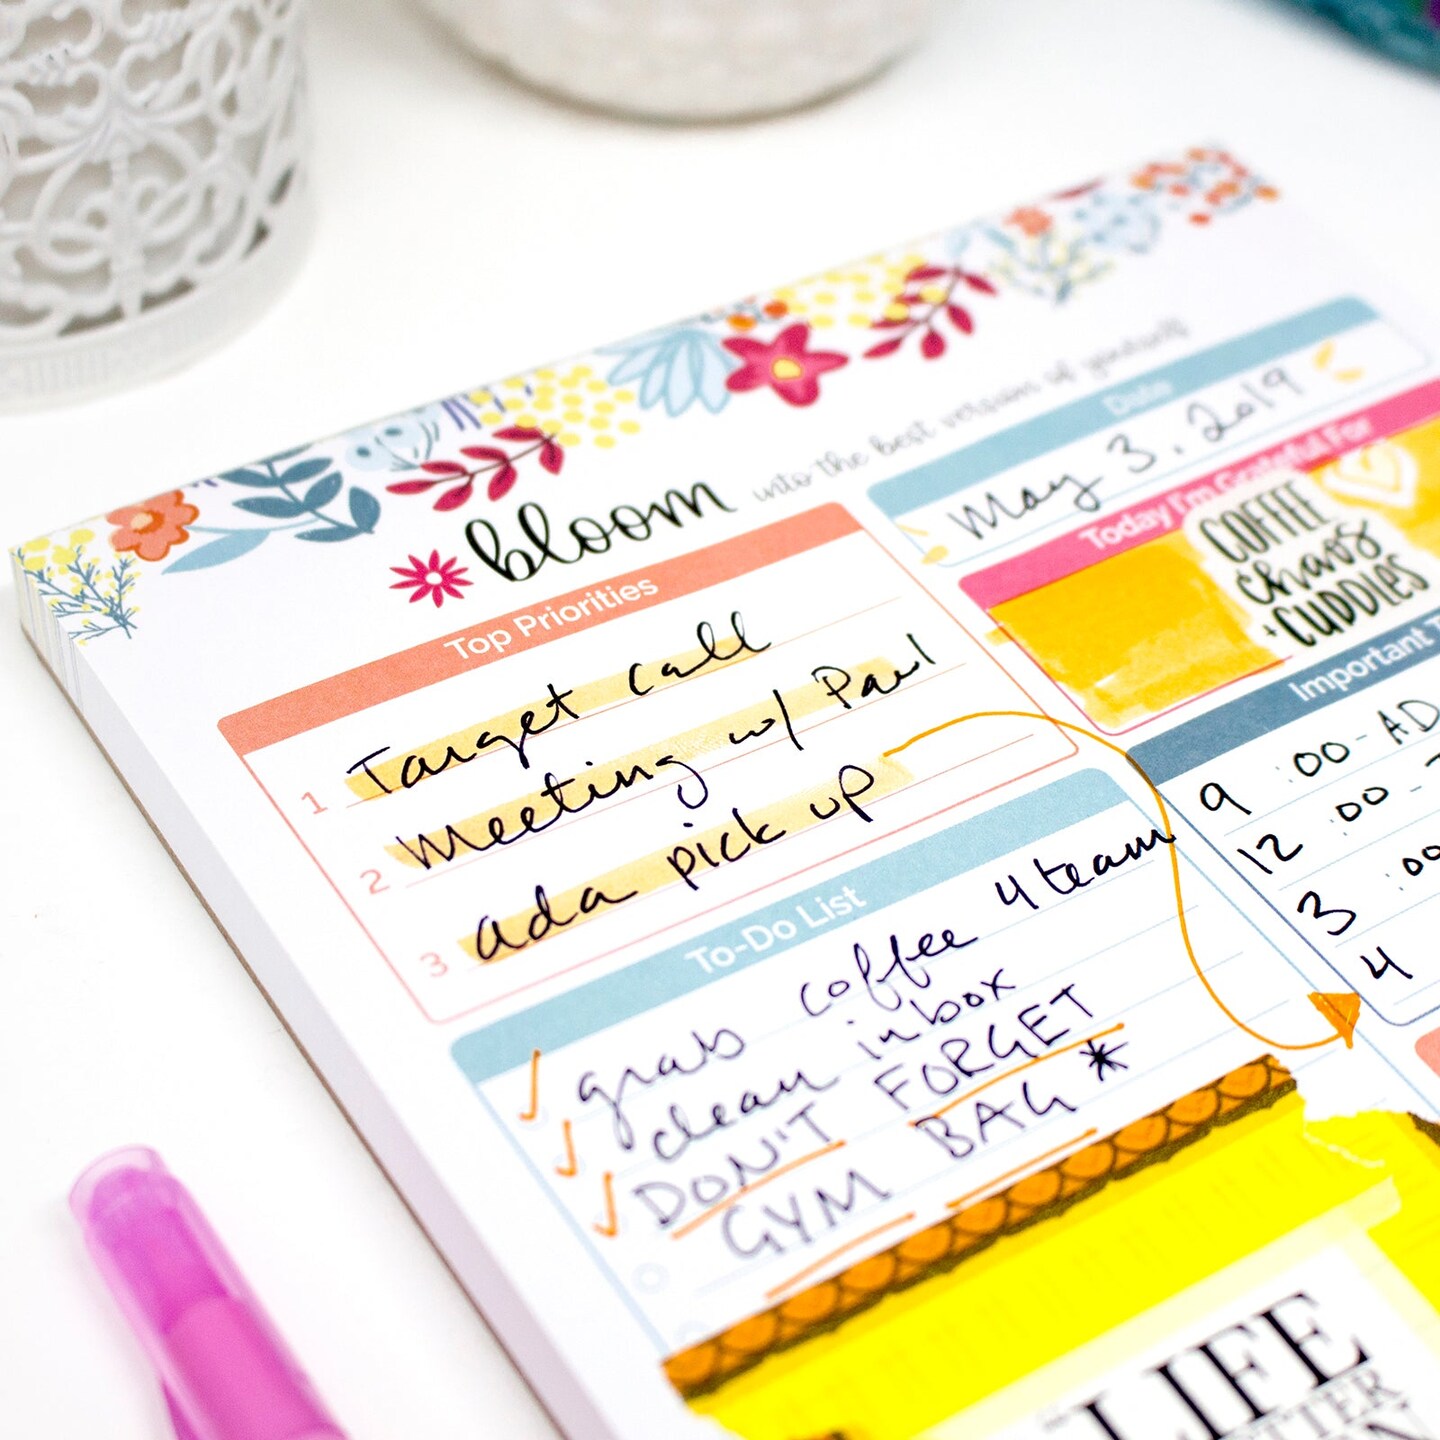 bloom into the best version of yourself
Date
May 3, 2019
Top Priorities
1 Target call
2 Meeting w/ Paul
3 Ada pick up
Today I'm Grateful For
COFFEE
chaos
+ CUDDLES
Important
9:00 - AD
12:00 -
3:00
4
To-Do List
grab coffee 4 team
clean inbox
DON'T FORGET
GYM BAG *
LIFE